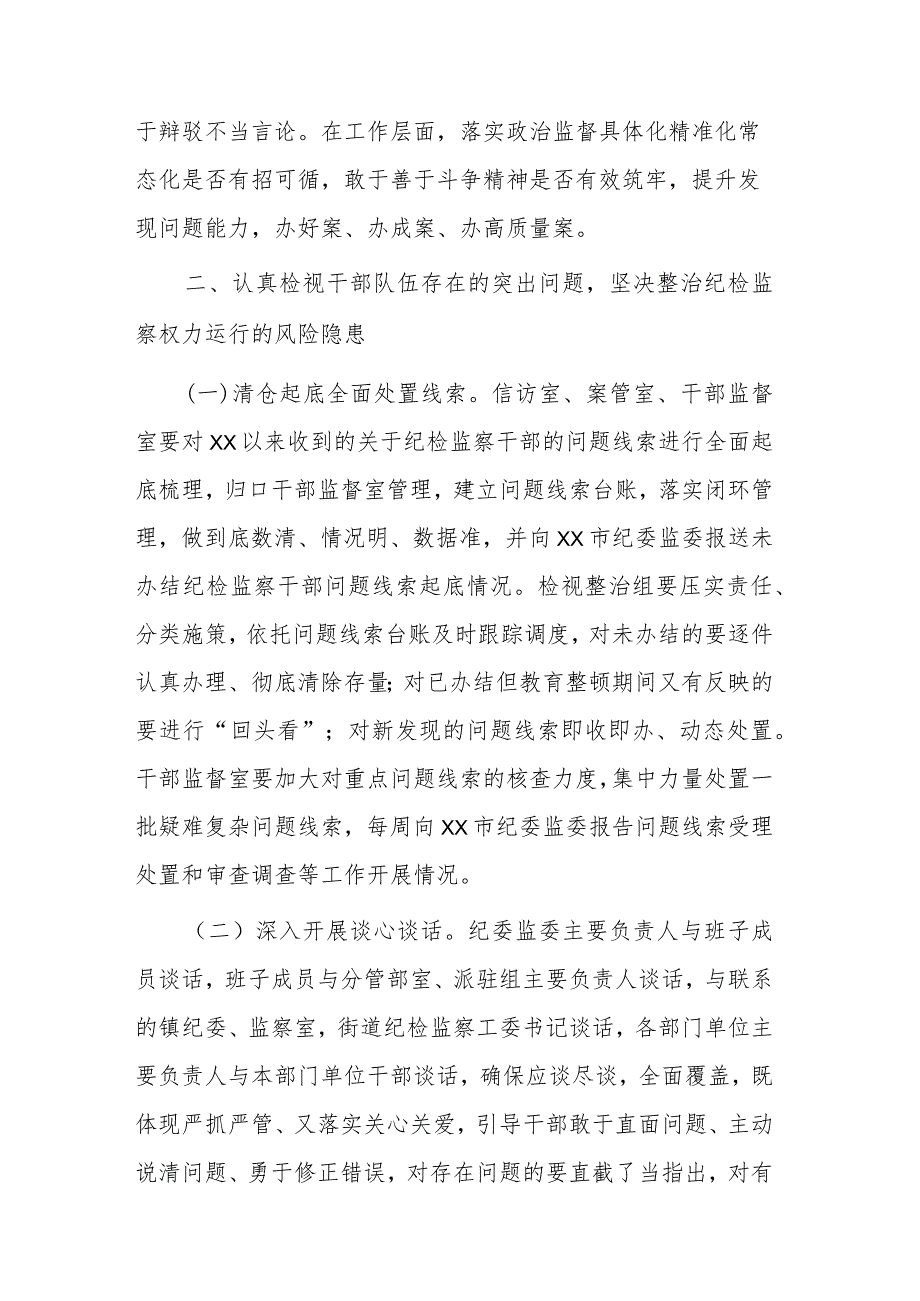 于辩驳不当言论。在工作层面，落实政治监督具体化精准化常
态化是否有招可循，敢于善于斗争精神是否有效筑牢，提升发
现问题能力，办好案、办成案、办高质量案。
二、认真检视干部队伍存在的突出问题，坚决整治纪检监
察权力运行的风险隐患
(一)清仓起底全面处置线索。信访室、案管室、干部监督
室要对XX以来收到的关于纪检监察干部的问题线索进行全面起
底梳理，归口干部监督室管理，建立问题线索台账，落实闭环管
理，做到底数清、情况明、数据准，并向XX市纪委监委报送未
办结纪检监察干部问题线索起底情况。检视整治组要压实责任、
分类施策，依托问题线索台账及时跟踪调度，对未办结的要逐件
认真办理、彻底清除存量；对已办结但教育整顿期间又有反映的
要进行“回头看”；对新发现的问题线索即收即办、动态处置。
干部监督室要加大对重点问题线索的核查力度，集中力量处置一
批疑难复杂问题线索，每周向XX市纪委监委报告问题线索受理
处置和审查调查等工作开展情况。
（二）深入开展谈心谈话。纪委监委主要负责人与班子成
员谈话，班子成员与分管部室、派驻组主要负责人谈话，与联系
的镇纪委、监察室，街道纪检监察工委书记谈话，各部门单位主
要负责人与本部门单位干部谈话，确保应谈尽谈，全面覆盖，既
体现严抓严管、又落实关心关爱，引导干部敢于直面问题、主动
说清问题、勇于修正错误，对存在问题的要直截了当指出，对有